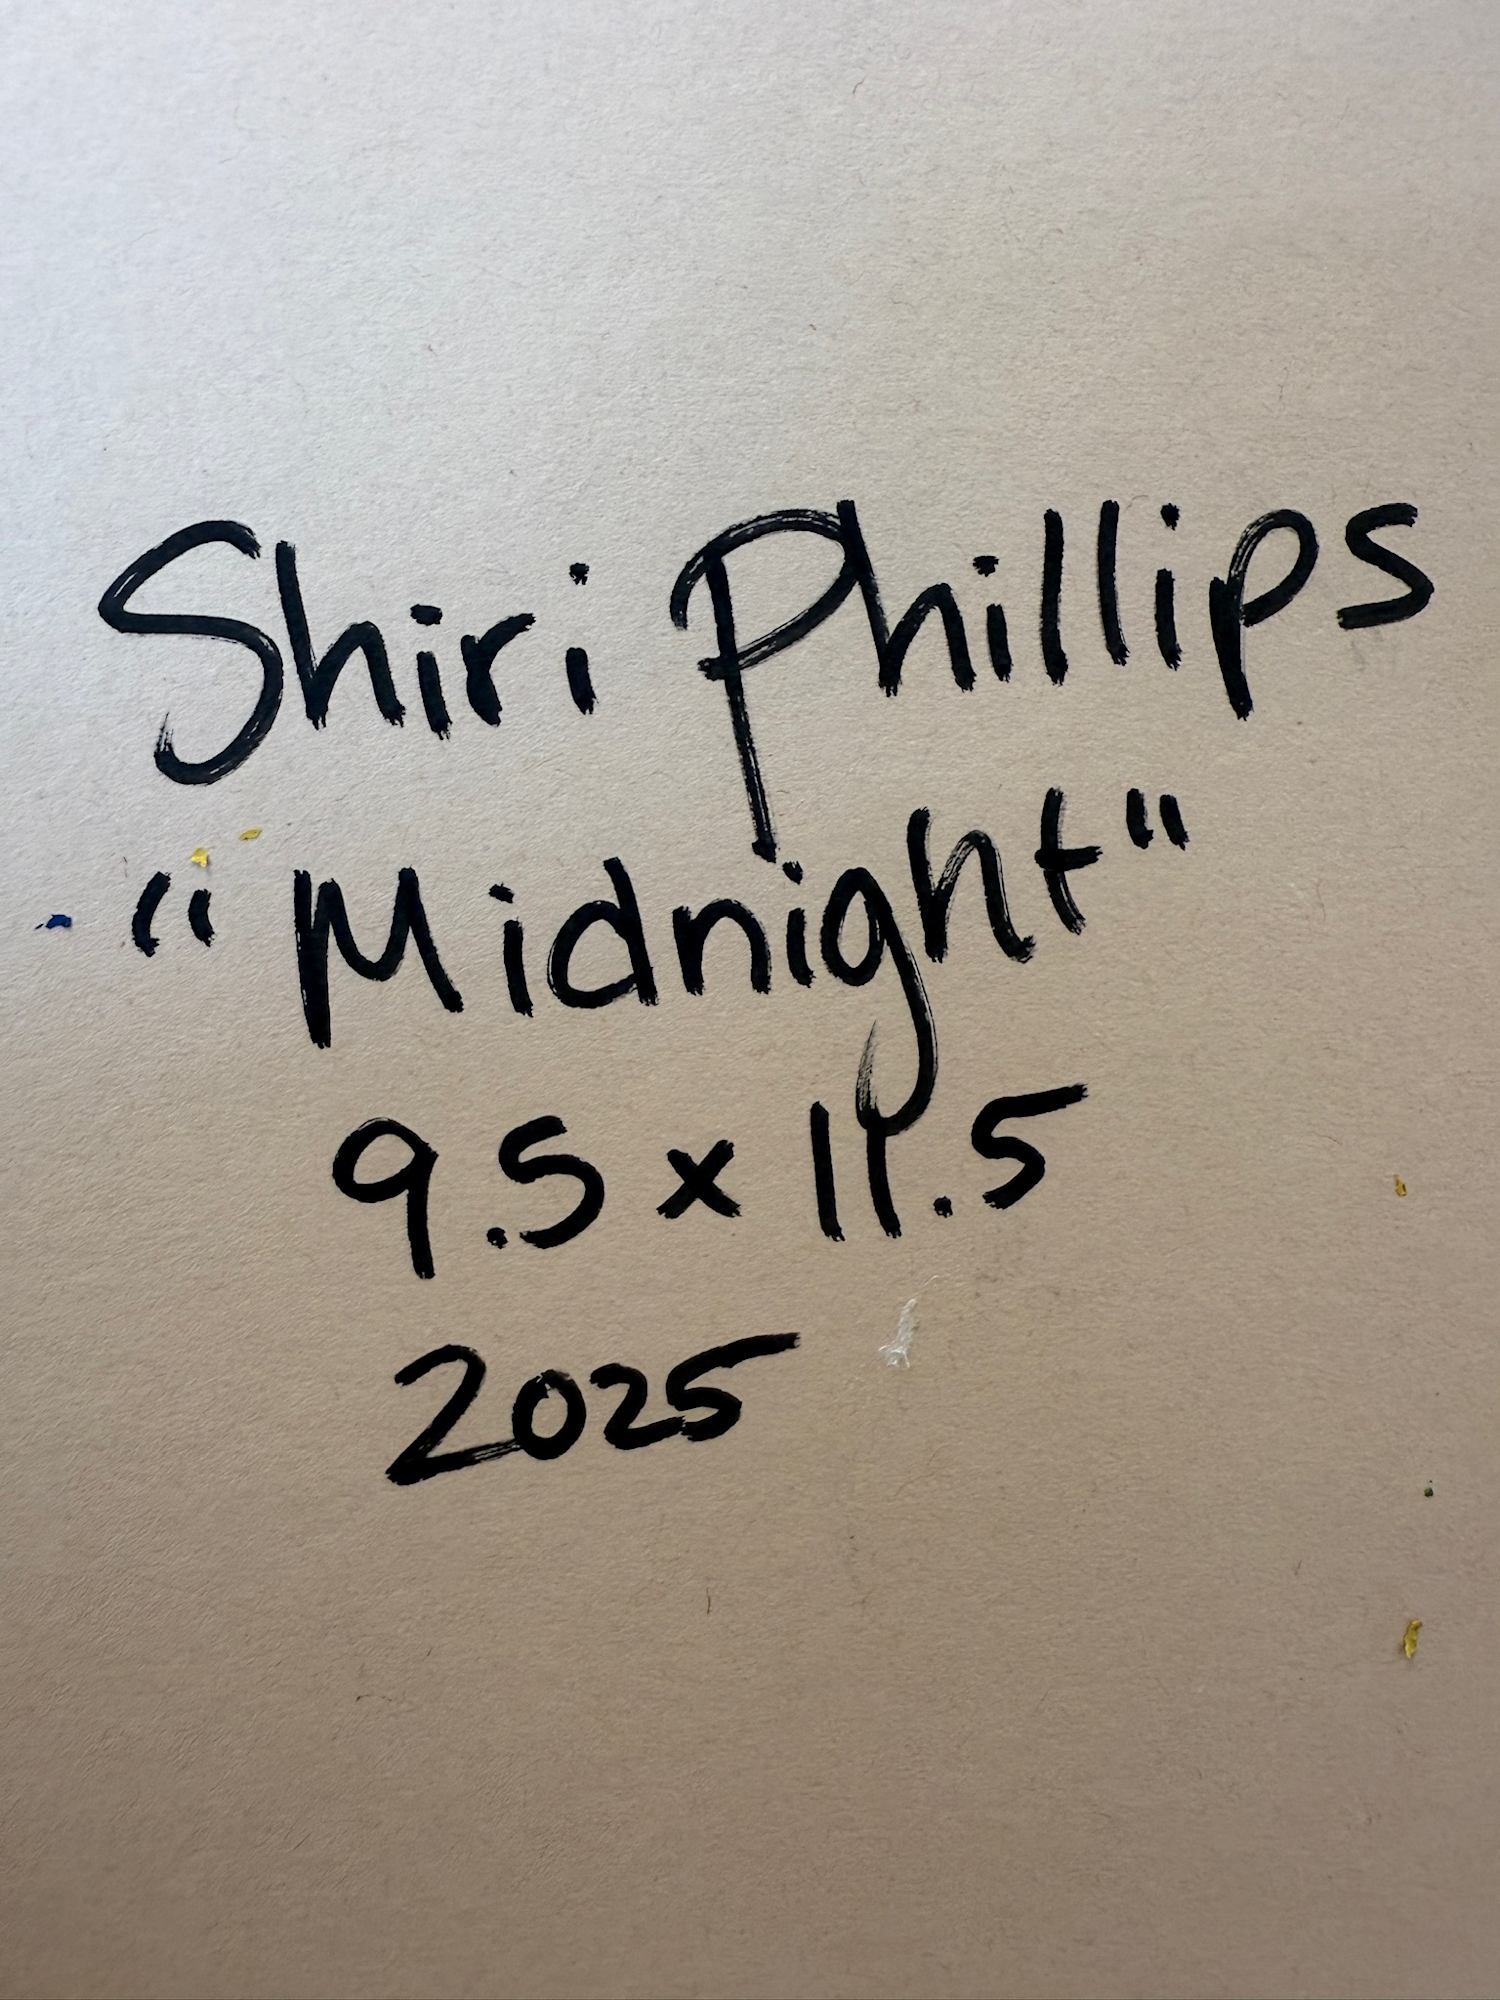 Shiri Phillips
"Midnight"
9.5 x 11.5
2025